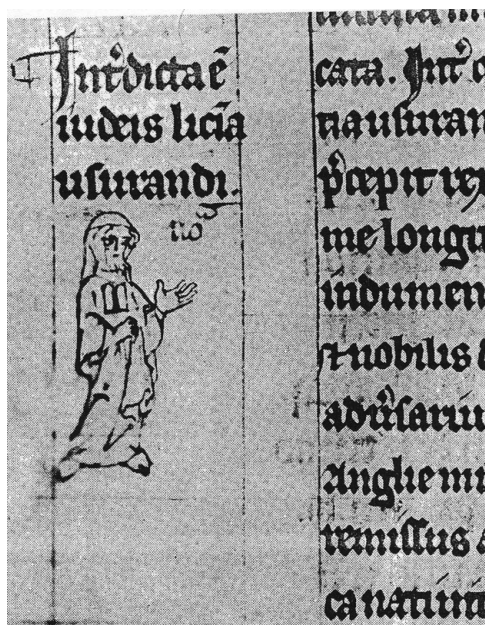 Int̉dicta ē
iudeis licīa
usurandi.
no
cata. Int̉ c
tia usuran
p̉cepit re
me longi
indumen
⁊ nobilis
adũsariu
Anglie mi
remissus
ca natiuit